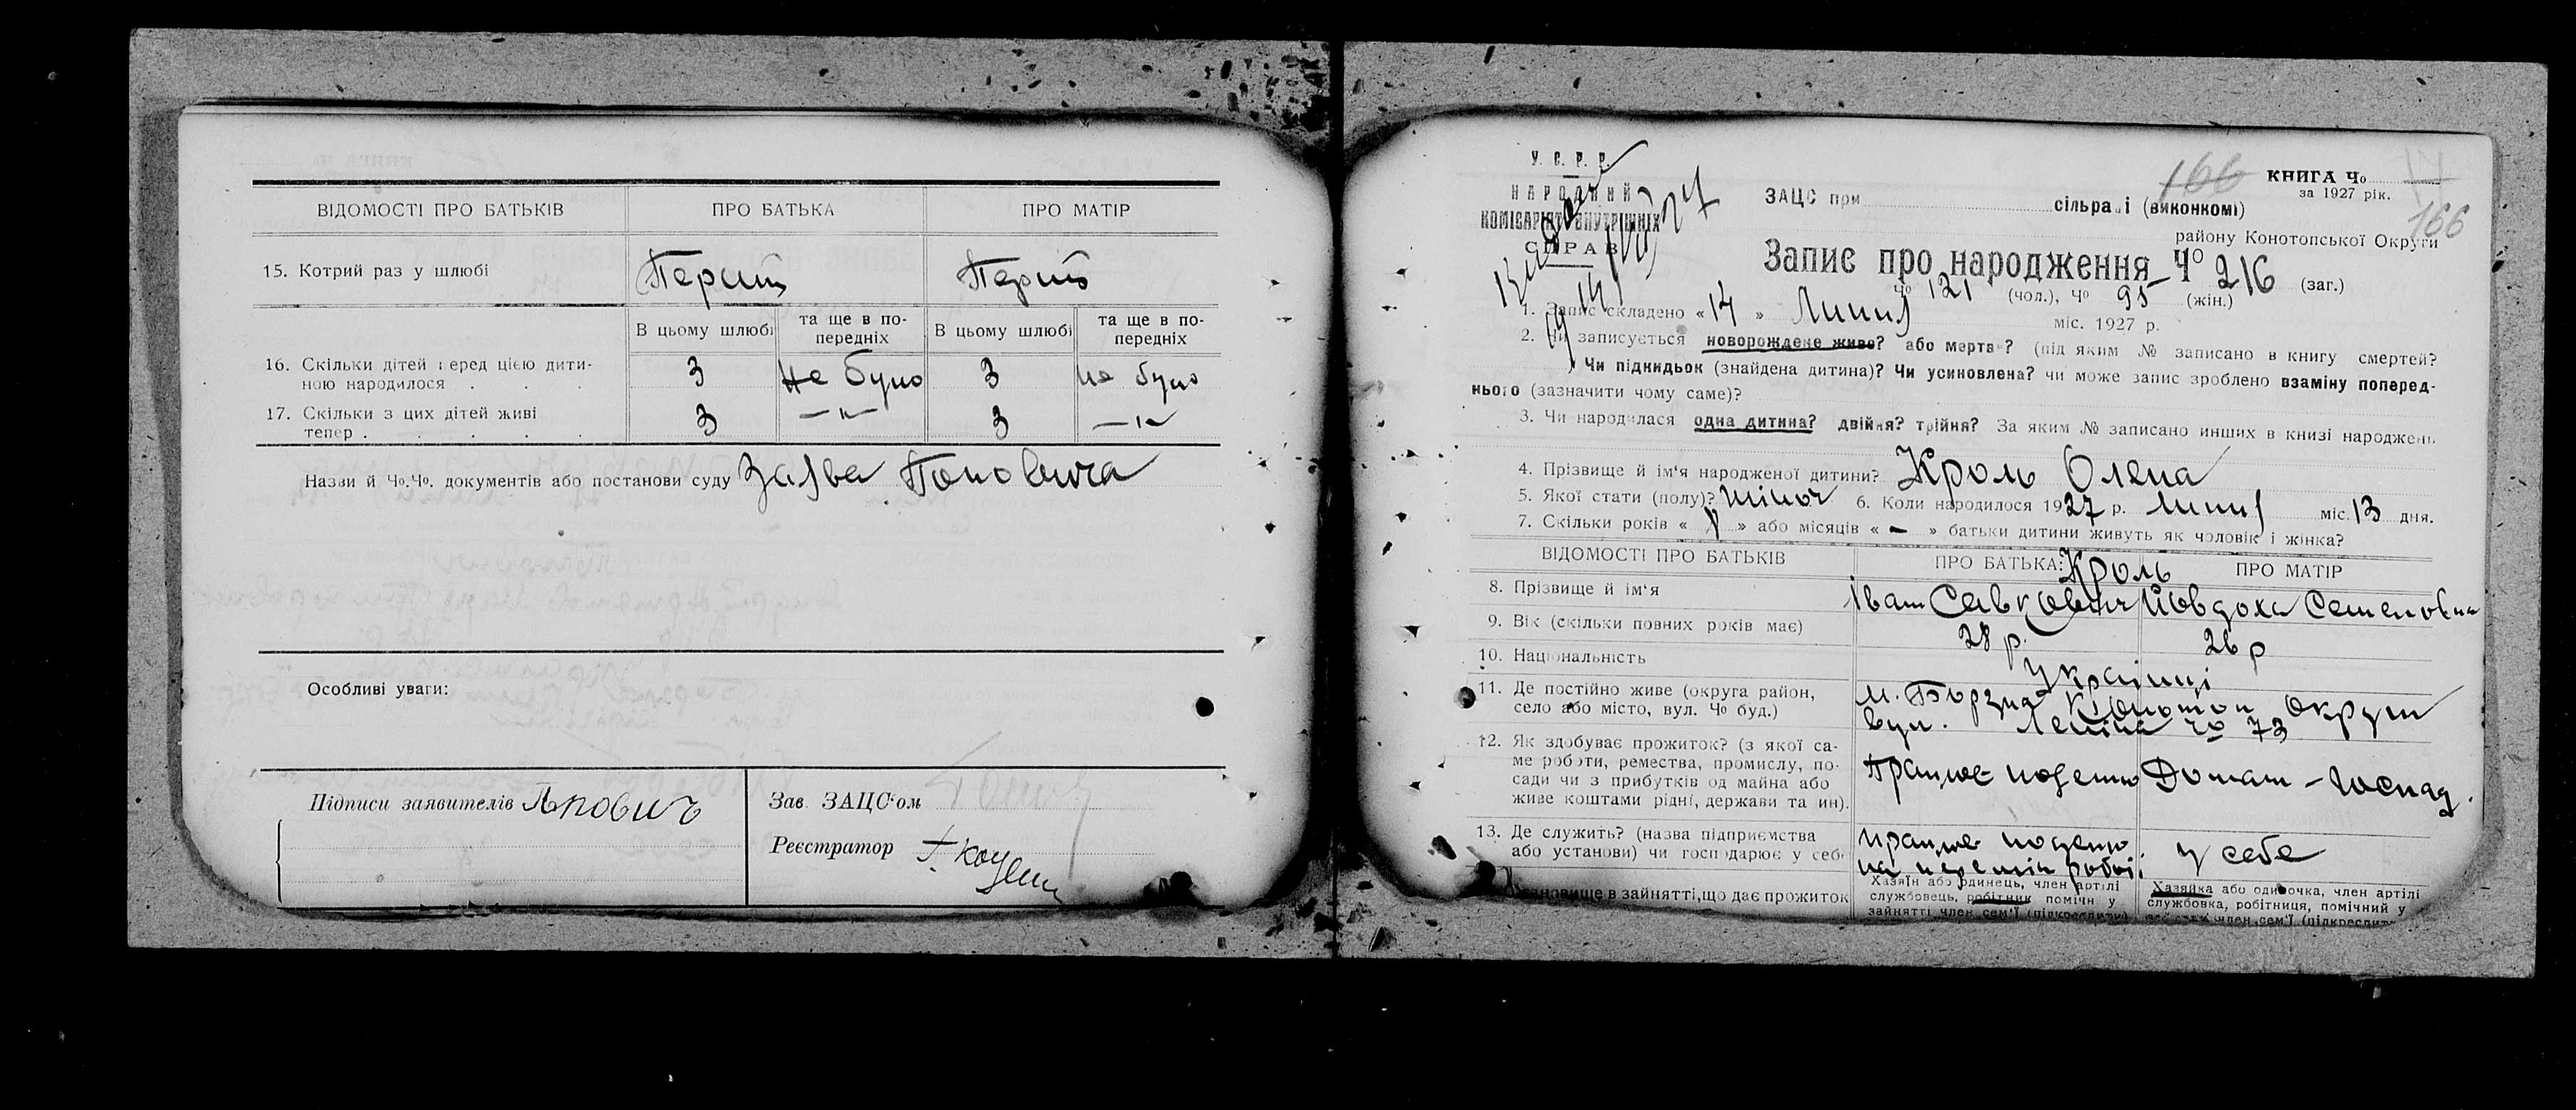 ВІДОМОСТІ ПРО БАТЬКІВ ПРО БАТЬКА ПРО МАТІР
15. Котрий раз у шлюбі Перший Перший
В цьому шлюбі та ще в попередніх В цьому шлюбі та ще в попередніх
16. Скільки дітей перед цією дитиною народилося . . . 3 не було 3 не було
17. Скільки з цих дітей живі тепер . . . . . 3 —"— 3 —"—
Назви й Чо.Чо. документів або постанови суду Заява Поповича
Особливі уваги:
Підписи заявителів Попович
Зав. ЗАЦС'ом
Реєстратор
У. С. Р. Р.
НАРОДНИЙ
КОМІСАРІЯТ ВНУТРІШНІХ
СПРАВ
166 КНИГА Чо 17
за 1927 рік.
166
ЗАЦС при сільраді (виконкомі)
району Конотопської Округи
Запис про народження Чо 216 (заг.)
Чо 121 (чол.), Чо 95 (жін.)
1. Запис складено « 14 » Липня міс. 1927 р.
2. Чи записується новорождене живе? або мертве? (під яким № записано в книгу смертей?
) Чи підкидьок (знайдена дитина)? Чи усиновлена? чи може запис зроблено взаміну поперед-
нього (зазначити чому саме)?
3. Чи народилася одна дитина? двійня? трійня? За яким № записано инших в книзі народжень
4. Прізвище й ім'я народженої дитини? Кроль Олена
5. Якої стати (полу)? жіноч 6. Коли народилося 1927 р. Липня міс. 13 дня.
7. Скільки років « » або місяців « – » батьки дитини живуть як чоловік і жінка?
ВІДОМОСТІ ПРО БАТЬКІВ ПРО БАТЬКА: ПРО МАТІР
Кроль
8. Прізвище й ім'я Іван Савкович Йовдоха Семеновна
9. Вік (скільки повних років має) 28 р. 26 р
10. Національність Українці
11. Де постійно живе (округа район, село або місто, вул. Чо буд.) м. Борзна Конотоп округи
вул. Леніна Чо 73
12. Як здобуває прожиток? (з якої са-
ме роботи, ремества, промислу, по-
сади чи з прибутків од майна або
живе коштами рідні, держави та ин). Працює поденно Домаш – господ.
13. Де служить? (назва підприємства
або установи) чи господарює у себе працює поденно у себе
на роботі
становище в зайнятті, що дає прожиток
Хазяїн або одинець, член артілі
службовець, робітник помічн у
зайнятті член сем'ї (підкреслити)
Хазяйка або одиночка, член артілі
службовка, робітниця, помічний у
член сем'ї (підкреслити